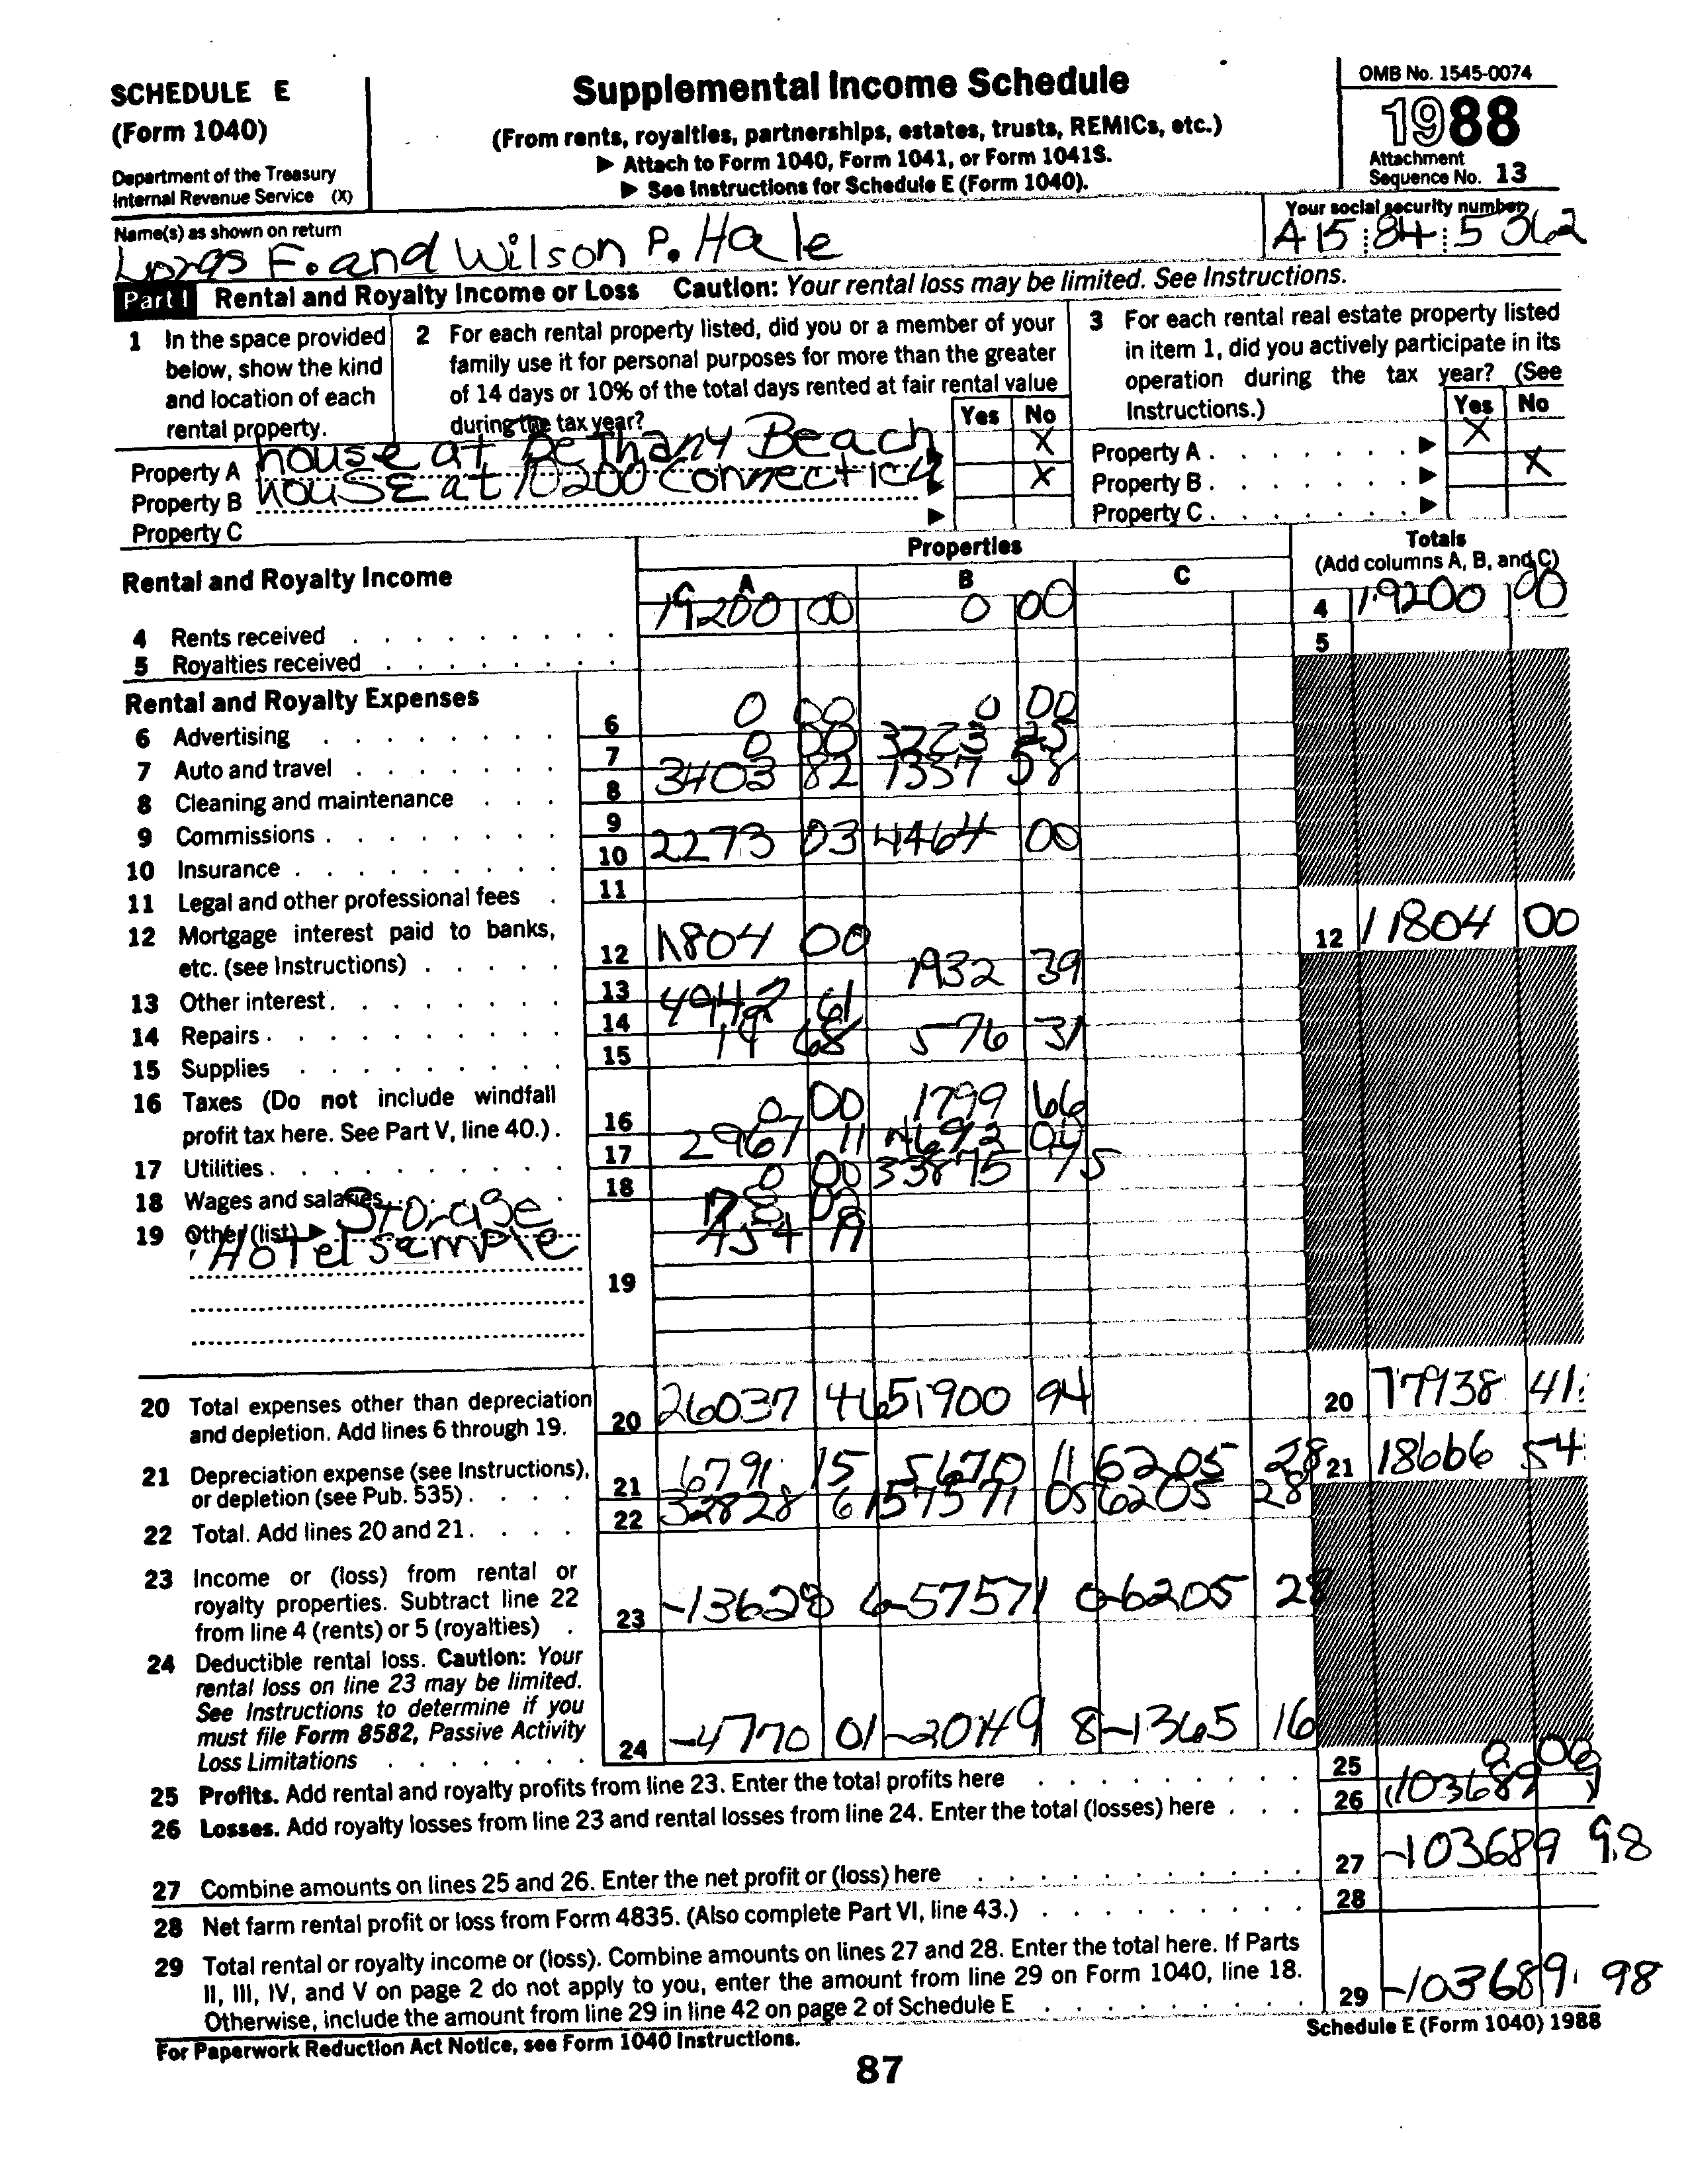 SCHEDULE E
(Form 1040)
Department of the Treasury
Internal Revenue Service (X)
Supplemental Income Schedule
(From rents, royalties, partnerships, estates, trusts, REMICs, etc.)
▶ Attach to Form 1040, Form 1041, or Form 1041S.
▶ See Instructions for Schedule E (Form 1040).
OMB No. 1545-0074
1988
Attachment
Sequence No. 13
Name(s) as shown on return
F. and Wilson P. Hale
Your social security number
A15 84 5362
Part I Rental and Royalty Income or Loss Caution: Your rental loss may be limited. See Instructions.
1 In the space provided below, show the kind and location of each rental property.
2 For each rental property listed, did you or a member of your family use it for personal purposes for more than the greater of 14 days or 10% of the total days rented at fair rental value during the tax year?
Yes No
3 For each rental real estate property listed in item 1, did you actively participate in its operation during the tax year? (See Instructions.)
Yes No
Property A house at Bethany Beach ▶ X Property A ▶ X
Property B house at 10200 Connecticu ▶ X Property B ▶ X
Property C ▶ Property C ▶
Rental and Royalty Income
Properties
A B C
Totals
(Add columns A, B, and C)
4 Rents received 19200 00 0 00 4 19200 00
5 Royalties received 5
Rental and Royalty Expenses
6 Advertising 6 0 00 0 00
7 Auto and travel 7 0 00 3223 25
8 Cleaning and maintenance 8 3403 82 1337 58
9 Commissions 9
10 Insurance 10 2273 03 4464 00
11 Legal and other professional fees 11
12 Mortgage interest paid to banks, etc. (see Instructions) 12 11804 00 12 11804 00
13 Other interest 13 1932 39
14 Repairs 14 4942 61
15 Supplies 15 19 68 576 31
16 Taxes (Do not include windfall profit tax here. See Part V, line 40.) 16 0 00 1799 66
17 Utilities 17 2967 11 4692 04
18 Wages and salaries 18 0 00 33875 75
19 Other (list) ▶ Storage 178 00
Hotel sample 454 19
19
20 Total expenses other than depreciation and depletion. Add lines 6 through 19. 20 26037 46 51900 94 20 77938 41
21 Depreciation expense (see Instructions), or depletion (see Pub. 535) 21 6791 15 5670 11 6205 28 21 18666 54
22 Total. Add lines 20 and 21 22 32828 61 57571 05 6205 28
23 Income or (loss) from rental or royalty properties. Subtract line 22 from line 4 (rents) or 5 (royalties) 23 -13628 6 -57571 0 -6205 28
24 Deductible rental loss. Caution: Your rental loss on line 23 may be limited. See Instructions to determine if you must file Form 8582, Passive Activity Loss Limitations 24 -4770 01 -20149 8 -1365 16
25 Profits. Add rental and royalty profits from line 23. Enter the total profits here 25 0 00
26 Losses. Add royalty losses from line 23 and rental losses from line 24. Enter the total (losses) here 26 (103689 9
27 Combine amounts on lines 25 and 26. Enter the net profit or (loss) here 27 -103689 98
28 Net farm rental profit or loss from Form 4835. (Also complete Part VI, line 43.) 28
29 Total rental or royalty income or (loss). Combine amounts on lines 27 and 28. Enter the total here. If Parts II, III, IV, and V on page 2 do not apply to you, enter the amount from line 29 on Form 1040, line 18. Otherwise, include the amount from line 29 in line 42 on page 2 of Schedule E 29 -103689 98
For Paperwork Reduction Act Notice, see Form 1040 Instructions.
Schedule E (Form 1040) 1988
87